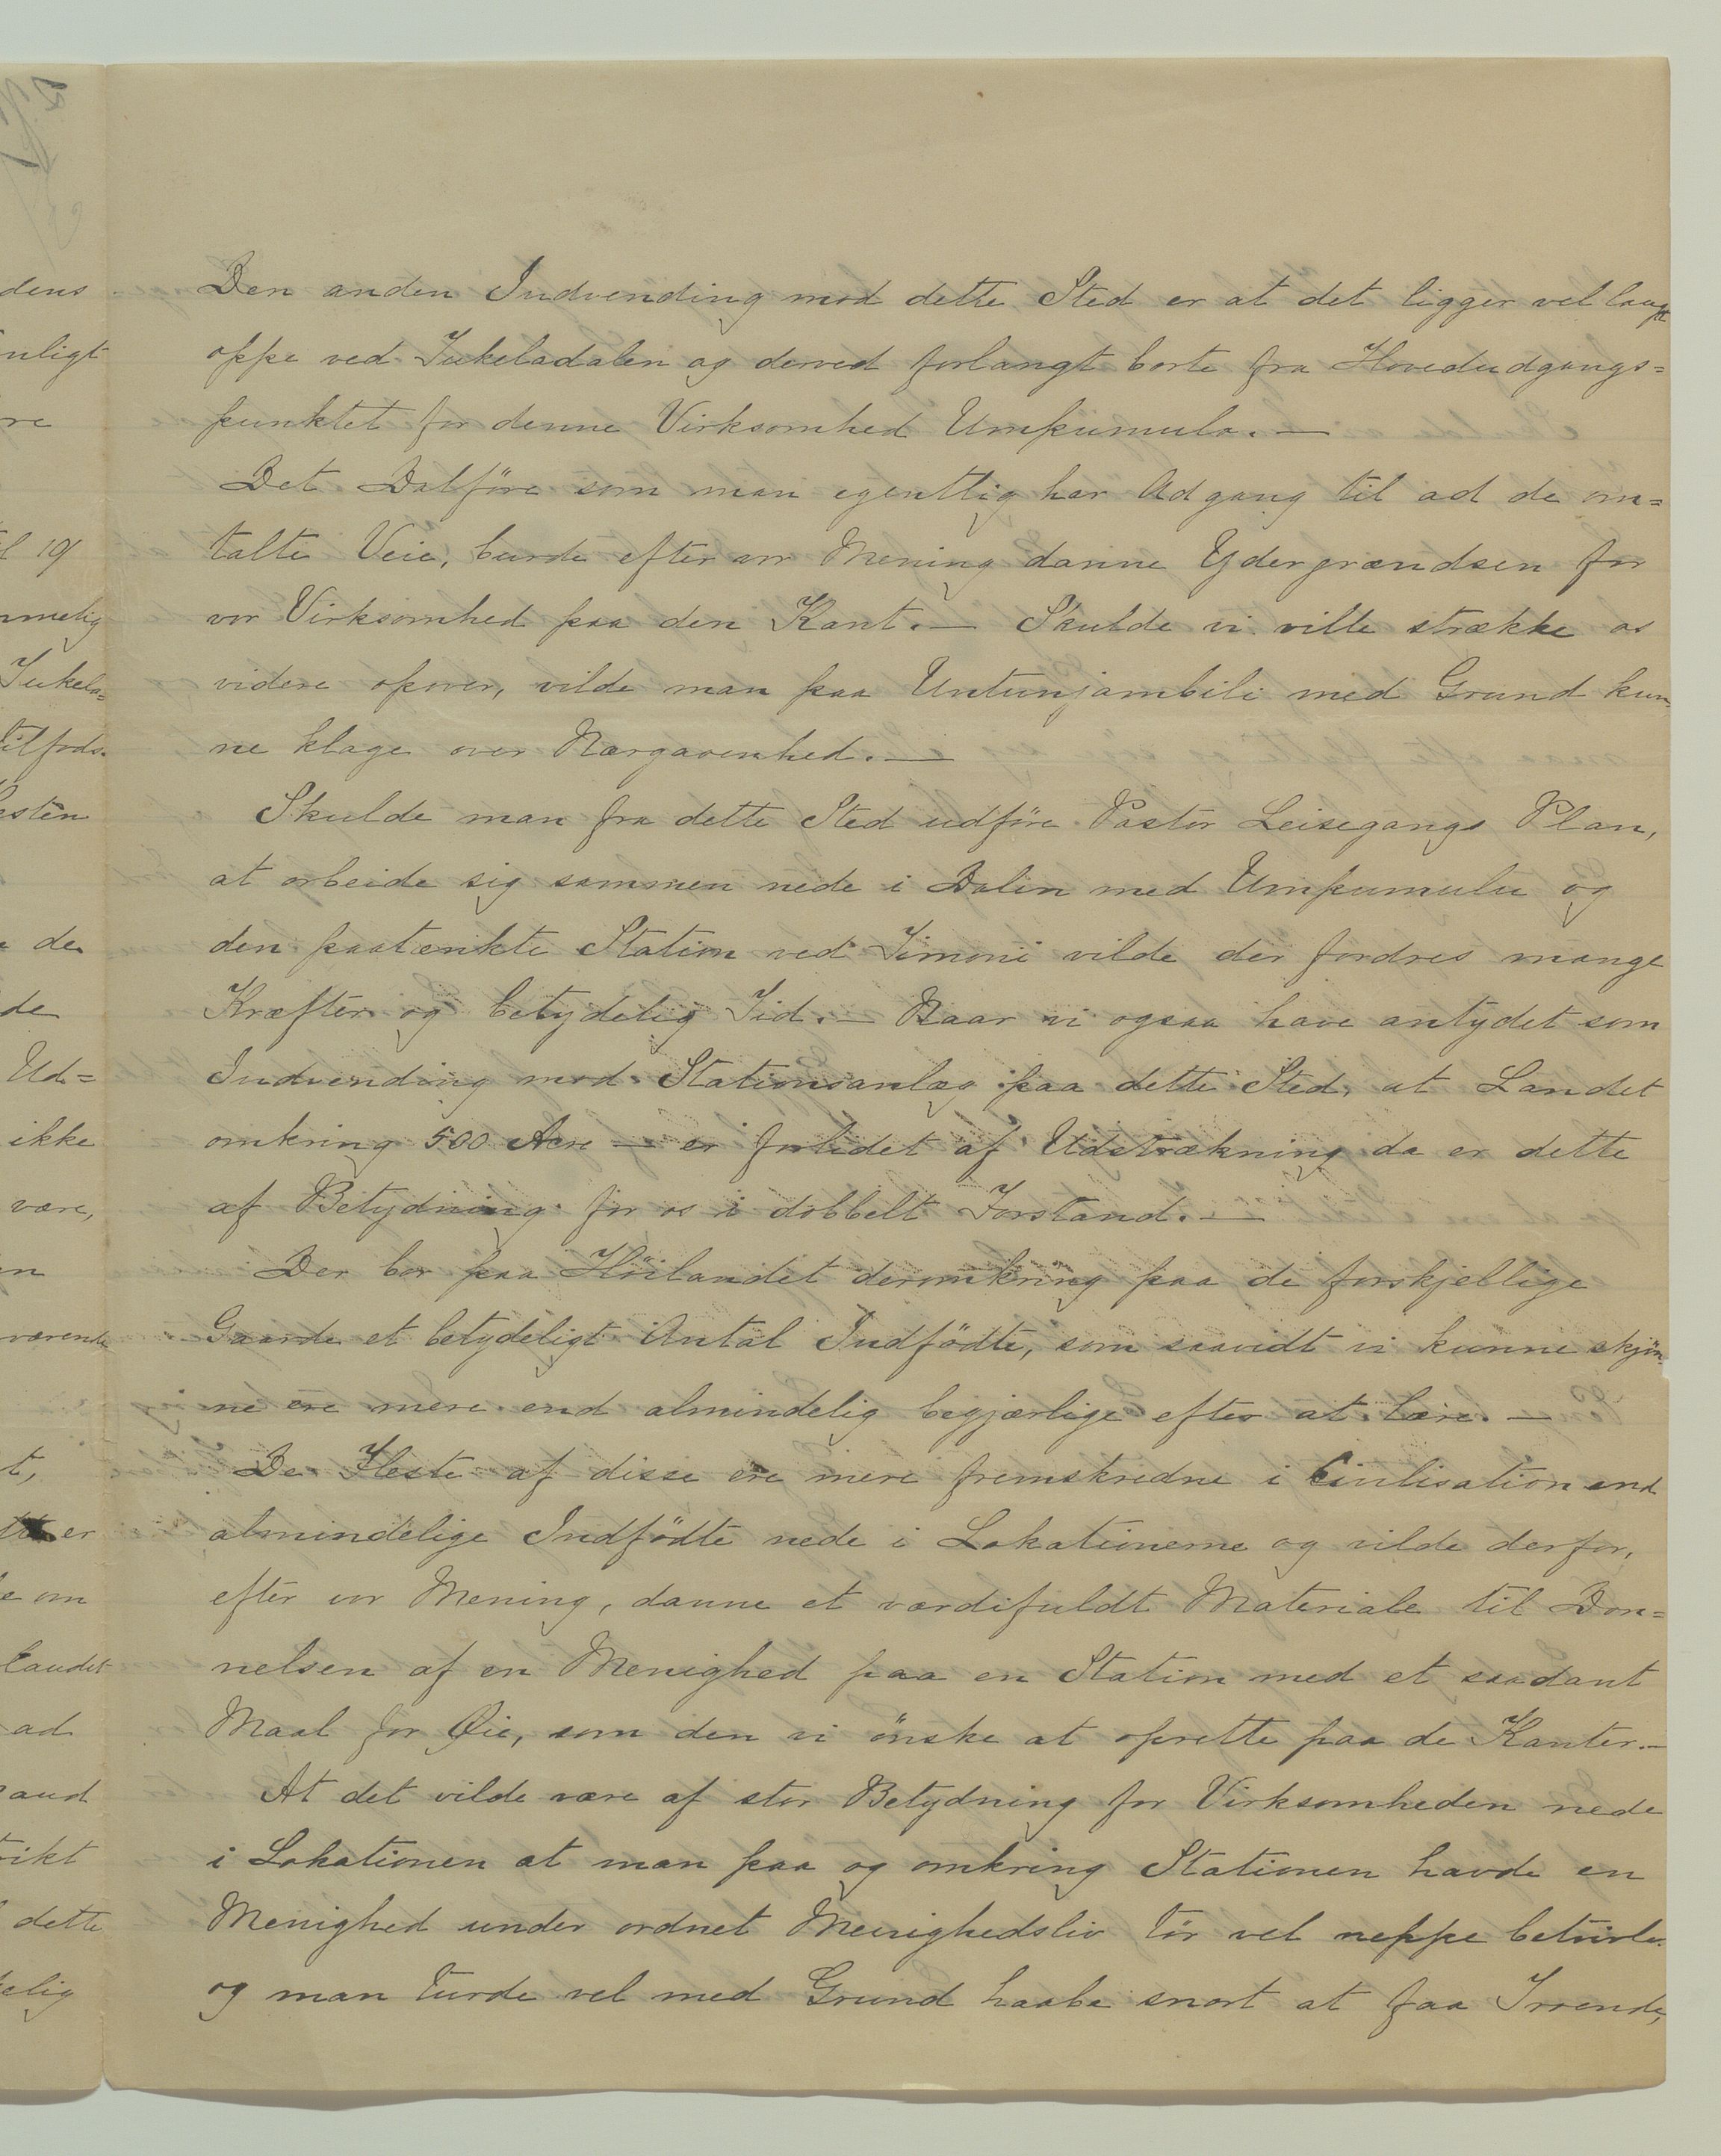 Den anden Indvending mod dette Sted er at det ligger vel langt
oppe ved Tukeladalen og derved forlangt borte fra Hovedudgangs=
punktet for denne Virksomhed Umpumulo. —
Det Dalföre som man egentlig har Adgang til ad de om=
talte Veie, burde efter vor Mening danne Ydergrændsen for
vor Virksomhed paa den Kant. — Skulde vi ville strække os
videre opover, vilde man paa Untunjambili med Grund kun=
ne klage over Nærgaaenhed. —
Skulde man fra dette Sted udföre Pastor Leisegangs Plan,
at arbeide sig sammen nede i Dalen med Umpumulu og
den paatænkte Station ved Timoni vilde der fordres mange
Kræfter og betydelig Tid. — Naar vi ogsaa have antydet som
Indvending mod Stationsanlæg paa dette Sted, at Landet
omkring 500 Acre — er forlidet af Udstrækning da er dette
af Betydning for os i dobbelt Forstand. —
Der bor paa Höilandet deromkring paa de forskjellige
Gaarde et betydeligt Antal Indfödte, som saavidt vi kunne skjön=
ne ere mere end almindelig begjærlige efter at lære. —
De Fleste af disse ere mere fremskredne i Civilisation end
almindelige Indfödte nede i Lokationerne og vilde derfor,
efter vor Mening, danne et værdifuldt Materiale til Dan=
nelsen af en Menighed paa en Station med et saadant
Maal for Øie, som den vi önske at oprette paa de Kanter. —
At det vilde være af stor Betydning for Virksomheden nede
i Lokationen at man paa og omkring Stationen havde en
Menighed under ordnet Menighedsliv tör vel neppe betvivles
og man turde vel med Grund haabe snart at faa Troende,
dens
nligt
re
l 19/
mmelig
Tukela=
tilfods.
esten
de
de
Ud=
ikke
være,
en
værende
t,
er
e om
landet
ad
aand
rikt
dette
elig